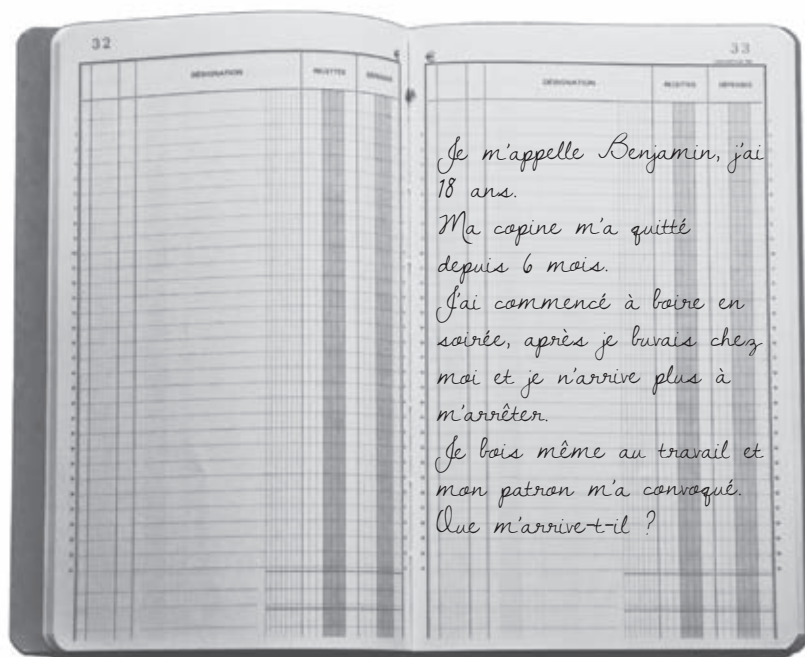 32
DÉSIGNATION RECETTES DÉPENSES
33
DÉSIGNATION RECETTES DÉPENSES
Je m'appelle Benjamin, j'ai
18 ans.
Ma copine m'a quitté
depuis 6 mois.
J'ai commencé à boire en
soirée, après je buvais chez
moi et je n'arrive plus à
m'arrêter.
Je bois même au travail et
mon patron m'a convoqué.
Que m'arrive-t-il ?